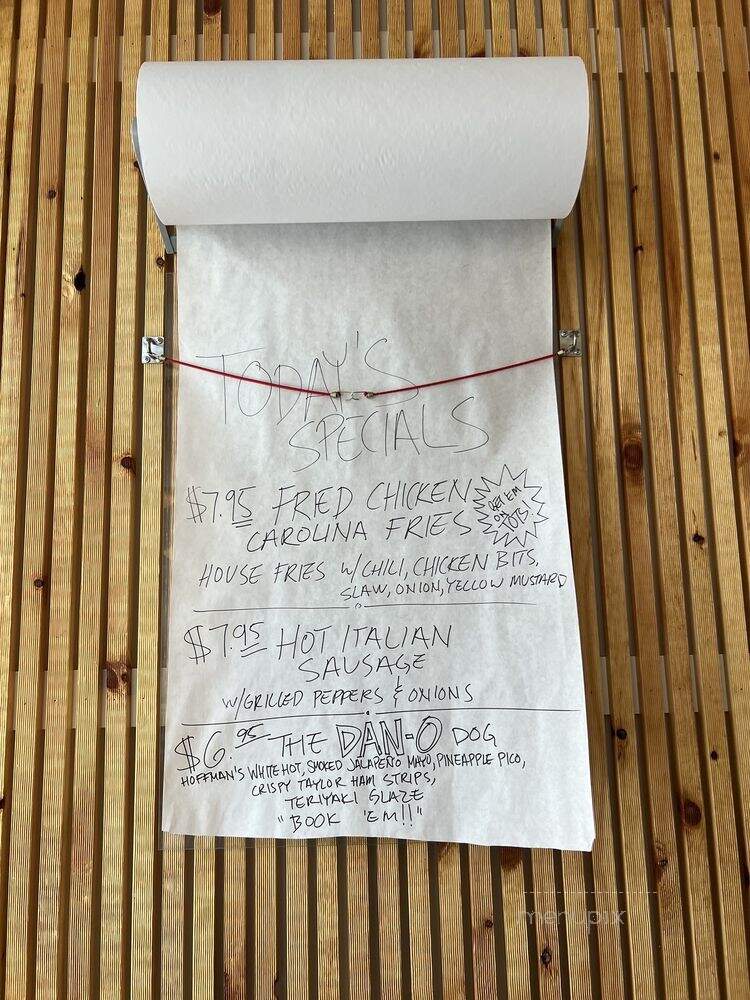 TODAY'S
SPECIALS
$7.95 FRIED CHICKEN
CAROLINA FRIES
GET 'EM
ON
TOTS!
HOUSE FRIES W/CHILI, CHICKEN BITS,
SLAW, ONION, YELLOW MUSTARD
$7.95 HOT ITALIAN
SAUSAGE
W/GRILLED PEPPERS & ONIONS
$6.95 THE DAN-O DOG
HOFFMAN'S WHITE HOT, SMOKED JALAPEÑO MAYO, PINEAPPLE PICO,
CRISPY TAYLOR HAM STRIPS,
TERIYAKI GLAZE
"BOOK 'EM!!"
menupix